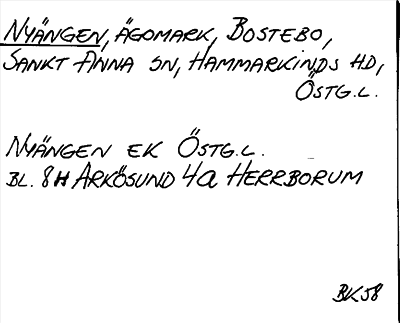 NYÄNGEN, ÄGOMARK, BOSTEBO,
SANKT ANNA SN, HAMMARKINDS HD,
ÖSTG.L.
NYÄNGEN EK ÖSTG.L.
BL. 8H ARKÖSUND 4a HERRBORUM
BK58